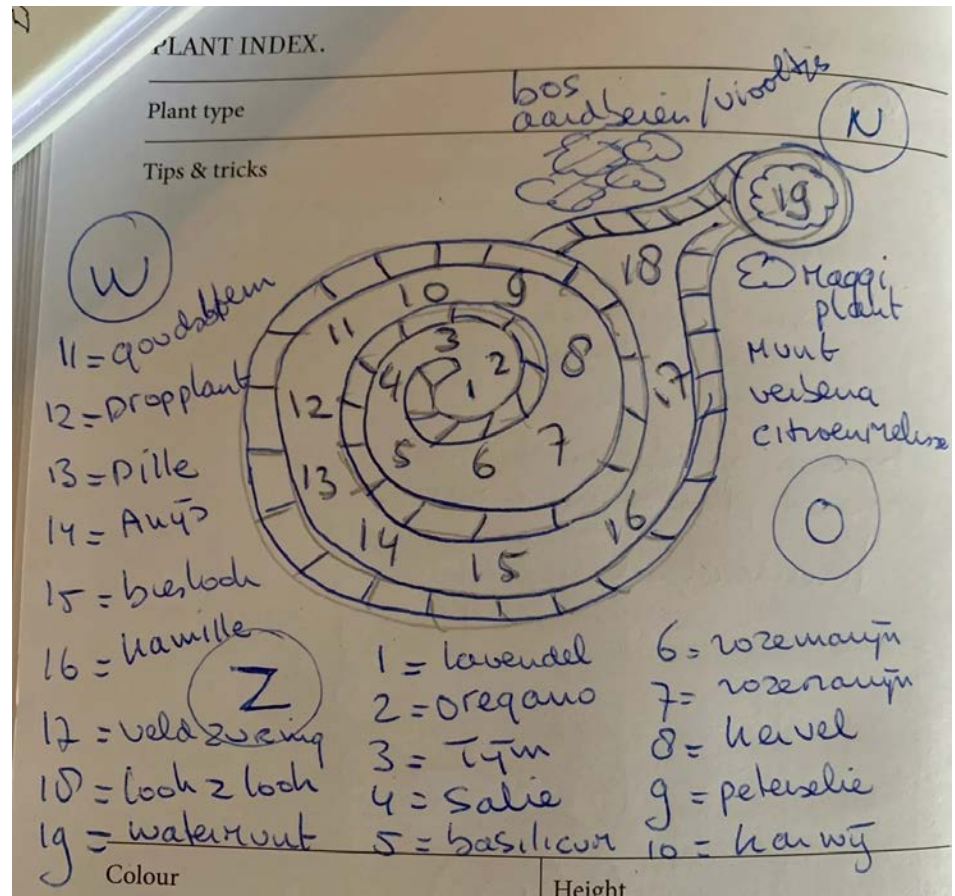 PLANT INDEX.
Plant type
bos
aardbeien/viooltjes
N
Tips & tricks
19
18
W
Maggi
plant
Munt
verbena
citroenmelisse
O
10
9
11
3
8
4
2
1
17
12
5
6
7
13
14
15
16
11 = goudsbloem
12 = Dropplant
13 = Dille
14 = Anijs
15 = bieslook
16 = kamille
Z
17 = veldzuring
18 = look z look
19 = watermunt
1 = lavendel
2 = oregano
3 = Tijm
4 = Salie
5 = basilicum
6 = rozemarijn
7 = rozemarijn
8 = kervel
9 = peterselie
10 = karwij
Colour
Height